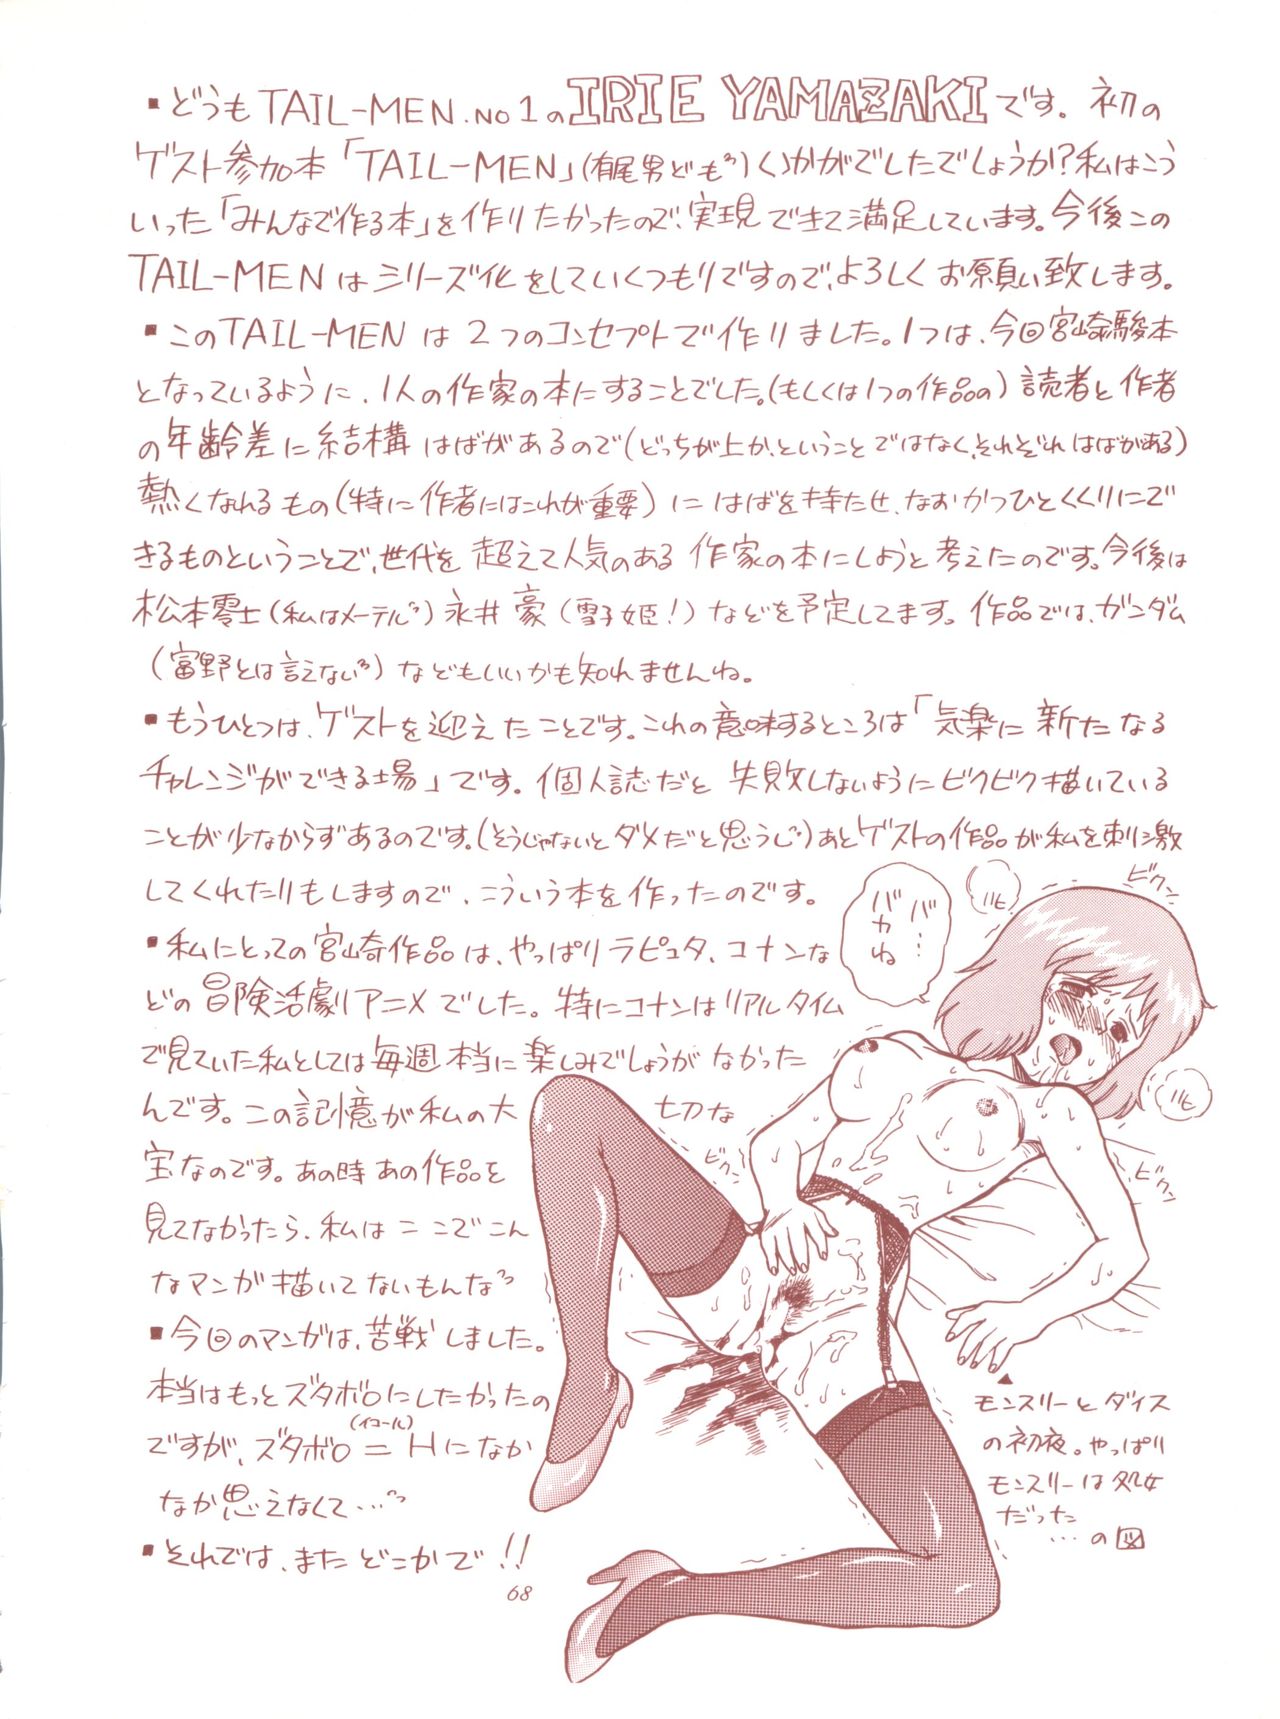 ▪どうもTAIL-MEN.NO1のIRIE YAMAZAKIです。初の
ゲスト参加本「TAIL-MEN」(有尾男ども〃)いかがでしたでしょうか?私はこう
いった「みんなで作る本」を作りたかったので、実現できて満足しています。今後この
TAIL-MENはシリーズ化をしていくつもりですので、よろしくお願い致します。
▪このTAIL-MENは2つのコンセプトで作りました。1つは、今回宮崎駿本
となっているように、1人の作家の本にすることでした。(もしくは1つの作品の)読者と作者
の年齢差に結構はばがあるので(どっちが上か、ということではなく、それぞれはばがある)
熱くなれるもの(特に作者にはこれが重要)にはばを持たせ、なおかつひとくくりにで
きるものということで、世代を超えて人気のある作家の本にしようと考えたのです。今後は
松本零士(私はメーテル〃)永井豪(雪子姫!)などを予定してます。作品では、ガンダム
(富野とは言えない〃)などもいいかも知れませんね。
▪もうひとつは、ゲストを迎えたことです。これの意味するところは「気楽に新たなる
チャレンジができる場」です。個人誌だと失敗しないようにビクビク描いている
ことが少なからずあるのです。(そうじゃないとダメだと思うし〃)あとゲストの作品が私を刺激
してくれたりもしますので、こういう本を作ったのです。
▪私にとっての宮崎作品は、やっぱりラピュタ、コナンな
どの冒険活劇アニメでした。特にコナンはリアルタイム
で見ていた私としては毎週本当に楽しみでしょうがなかった
んです。この記憶が私の大切な
宝なのです。あの時あの作品を
見てなかったら、私はここでこん
なマンガ描いてないもんな〃
▪今回のマンガは、苦戦しました。
本当はもっとズタボロにしたかったの
ですが、ズタボロ=(イコール)Hになか
なか思えなくて…〃
▪それでは、またどこかで!!
68
バ…
バカね
ハヒ
ビクン
ハヒ
ビクン
ビクン
▲
モンスリーとダイス
の初夜。やっぱり
モンスリーは処女
だった
…の図